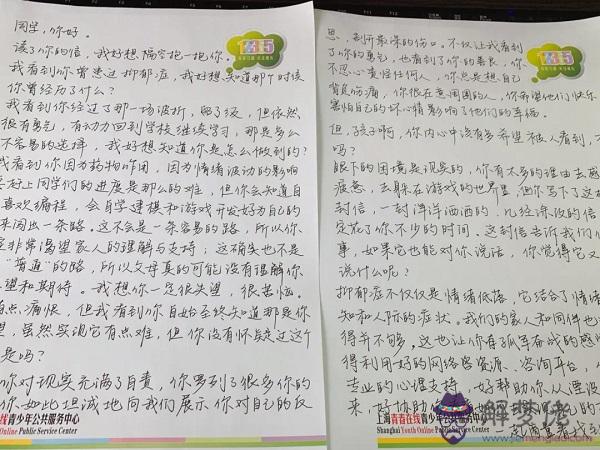 同学，你好。
12355
读了你的信，我好想隔空抱一抱你。
我看到你曾患过抑郁症，我好想知道那个时候
你曾经历了什么？
我看到你经过了那一场波折，留了级，但依然
很有勇气，有动力回到学校继续学习，那是多么
不容易的选择，我好想知道你是怎么做到的？
我看到你因为药物作用，因为情绪波动的影响
上同学们的进度是那么的难，但你会知道自
喜欢编程，会自学建模和游戏开发好为自己的
来闯出一条路。这不会是一条容易的路，所以你
非常渴望家人的理解与支持；这确实也不是
"普通"的路，所以父母真的可能没有理解你
望和期待。我想你一定很失望，很苦恼。
痛恨，但我看到你自始至终知道那是你
望，虽然实现它有点难，但你没有怀疑过这个
是吗？
你对现实充满了自责，你罗列了很多你的
你如此坦诚地向我们展示你对自己的反
线青少年公共服务中心
Online Public Service Center
思，剖开最深的伤口。不仅让我看到
了你的勇气，也看到了你的善良，你
12355
不忍心责怪任何人，你总是想自己
背负伤痛，你很在意周围的人，你希望他们快乐
害怕自己的坏心情影响了他们的幸福。
但，孩子啊，你内心中该有多希望被人看到，
吗？
眼下的困境是现实的，你有太多的理由去感
疲惫，去躲在游戏的世界里，但你写下了这
封信，一封洋洋洒洒的、几经涂改的信
花了你不少的时间。这封信告诉我们
事，如果它也能对你说话，你觉得它又
说什么呢？
抑郁症不仅仅是情绪低落，它结合了情绪
知和人际的症状。我们的家人和同伴也
得并不够。这也让你有了孤军奋战的感
得利用好的网络资源、咨询平台，
专业的心理支持，好帮助你从湮没
来，好协助你
上海青春在线青少年公共服务中心
Shanghai Youth Online Public Service Center
解梦佬